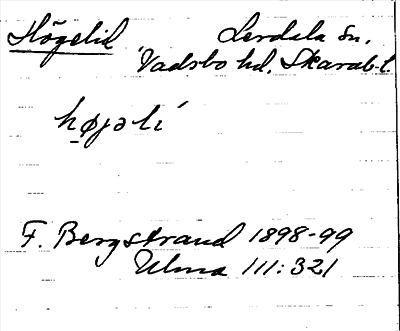 Högelid Lerdala sn.
Vadsbo hd. Skarab.l.
højəlí
F. Bergstrand 1898-99
Ulma 111:321